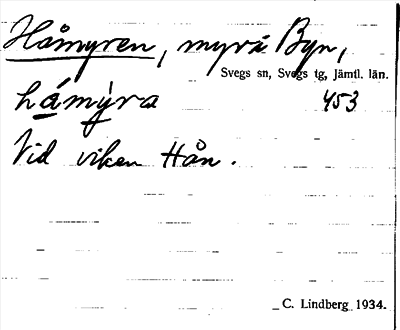 Håmyren, myr i Byn,
Svegs sn, Svegs tg, Jämtl. län.
hámỳra 453
Vid viken Hån.
C. Lindberg 1934.